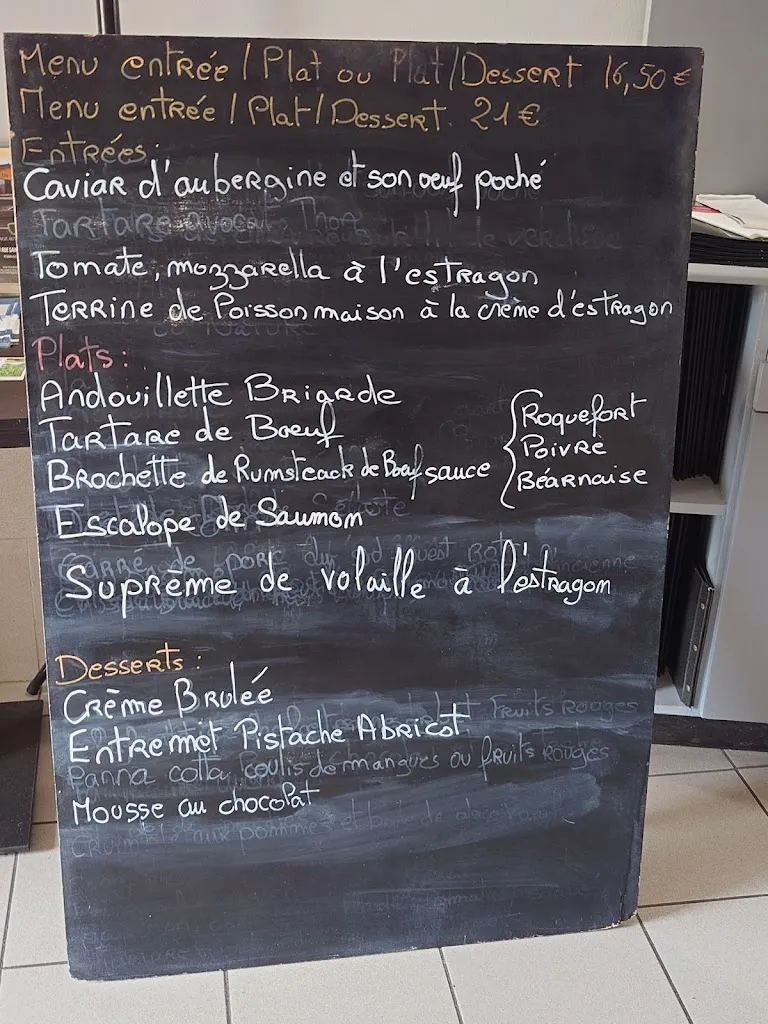 Menu entrée / Plat ou Plat/Dessert 16,50 €
Menu entrée / Plat / Dessert. 21 €
Entrées :
Caviar d'aubergine et son oeuf poché
Tartare avocat Thon
Tomate, mozzarella à l'estragon
Terrine de Poisson maison à la crème d'estragon
Plats :
Andouillette Briarde
Tartare de Boeuf
Brochette de Rumsteack de Boeuf sauce
Roquefort
Poivre
Béarnaise
Escalope de Saumon
Suprême de volaille à l'estragon
Desserts :
Crème Brulée
Fruits Rouges
Entremet Pistache Abricot
Panna cotta, coulis de mangues ou fruits rouges
Mousse au chocolat
Crumble aux pommes et boule de glace